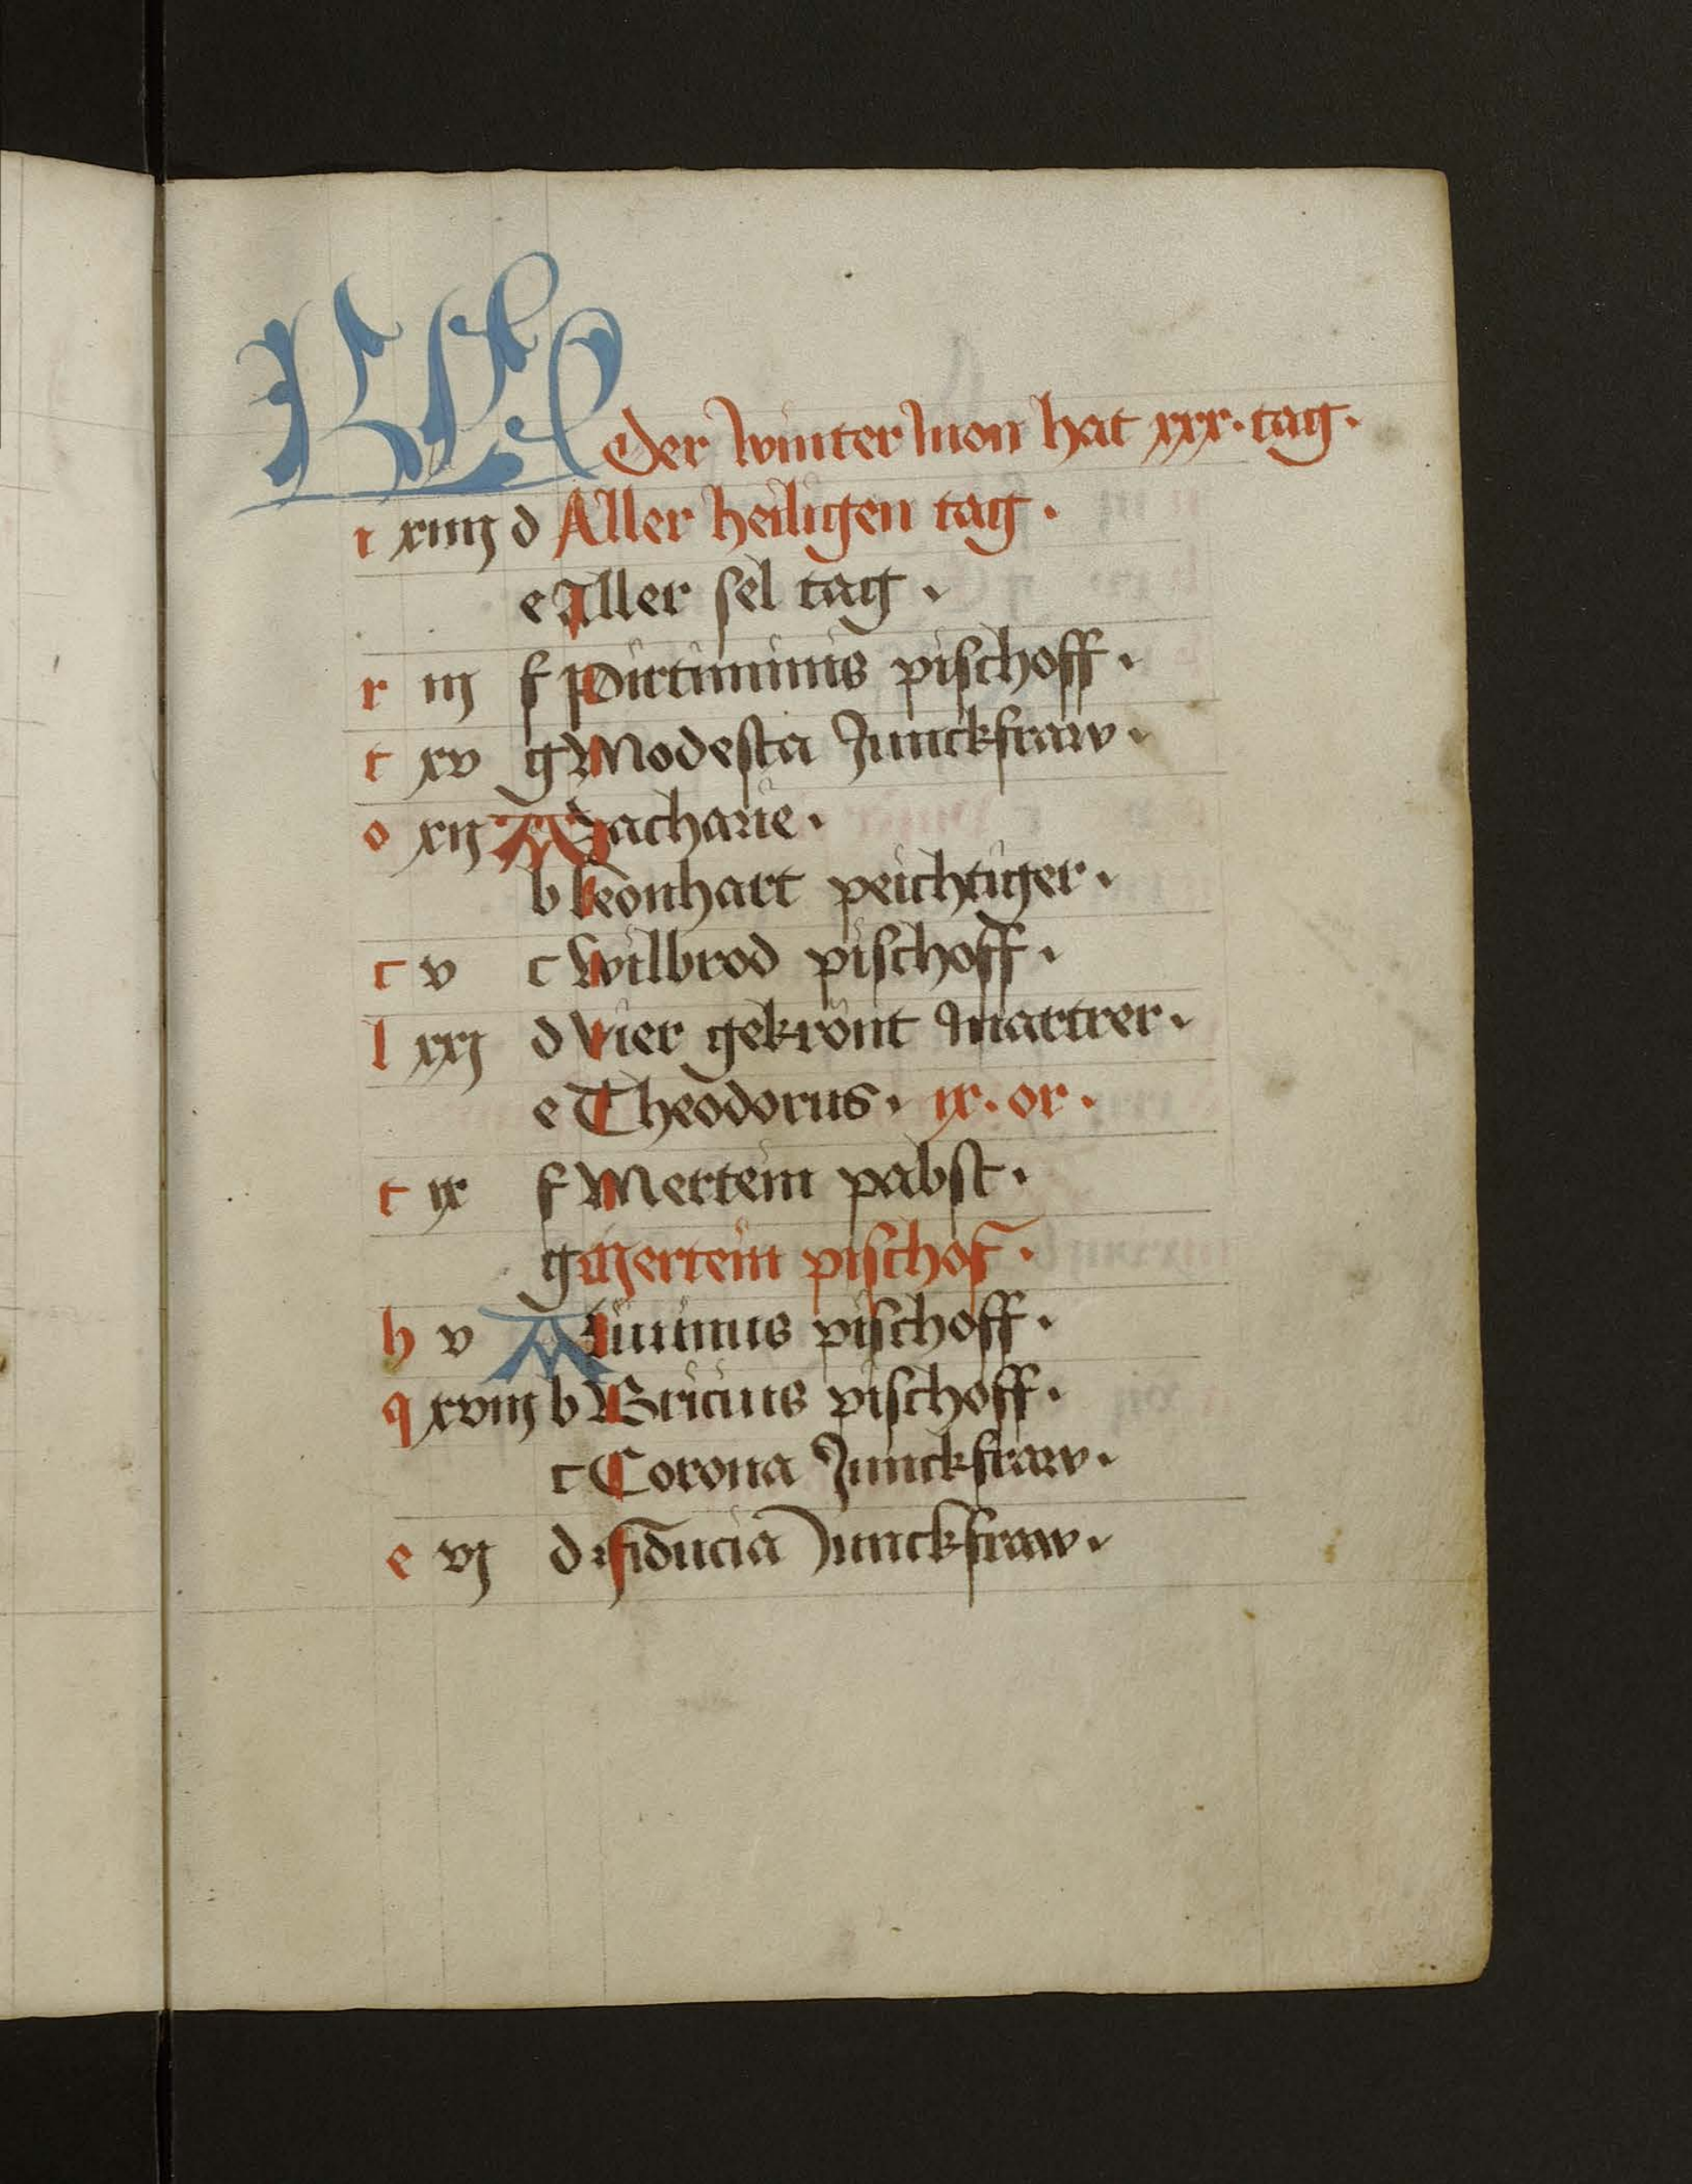 KL Der winter mon hat xxx. tag.
i xiiij d Aller heiligen tag.
e Aller sel tag.
r iij f Pirtiminus pischoff.
t xv g Modesta Junckfraw.
o xij A Zacharie.
b Leonhart peichtiger.
c v c Wilbrod pischoff.
l xxj d Vier gekrönt martrer.
e Theodorus. ix. or.
t ix f Mertein pabst.
g Mertein pischof.
h v A pischoff.
q xviij b Bricius pischoff.
c Corona Junckfraw.
e vj d fiducia Junckfraw.